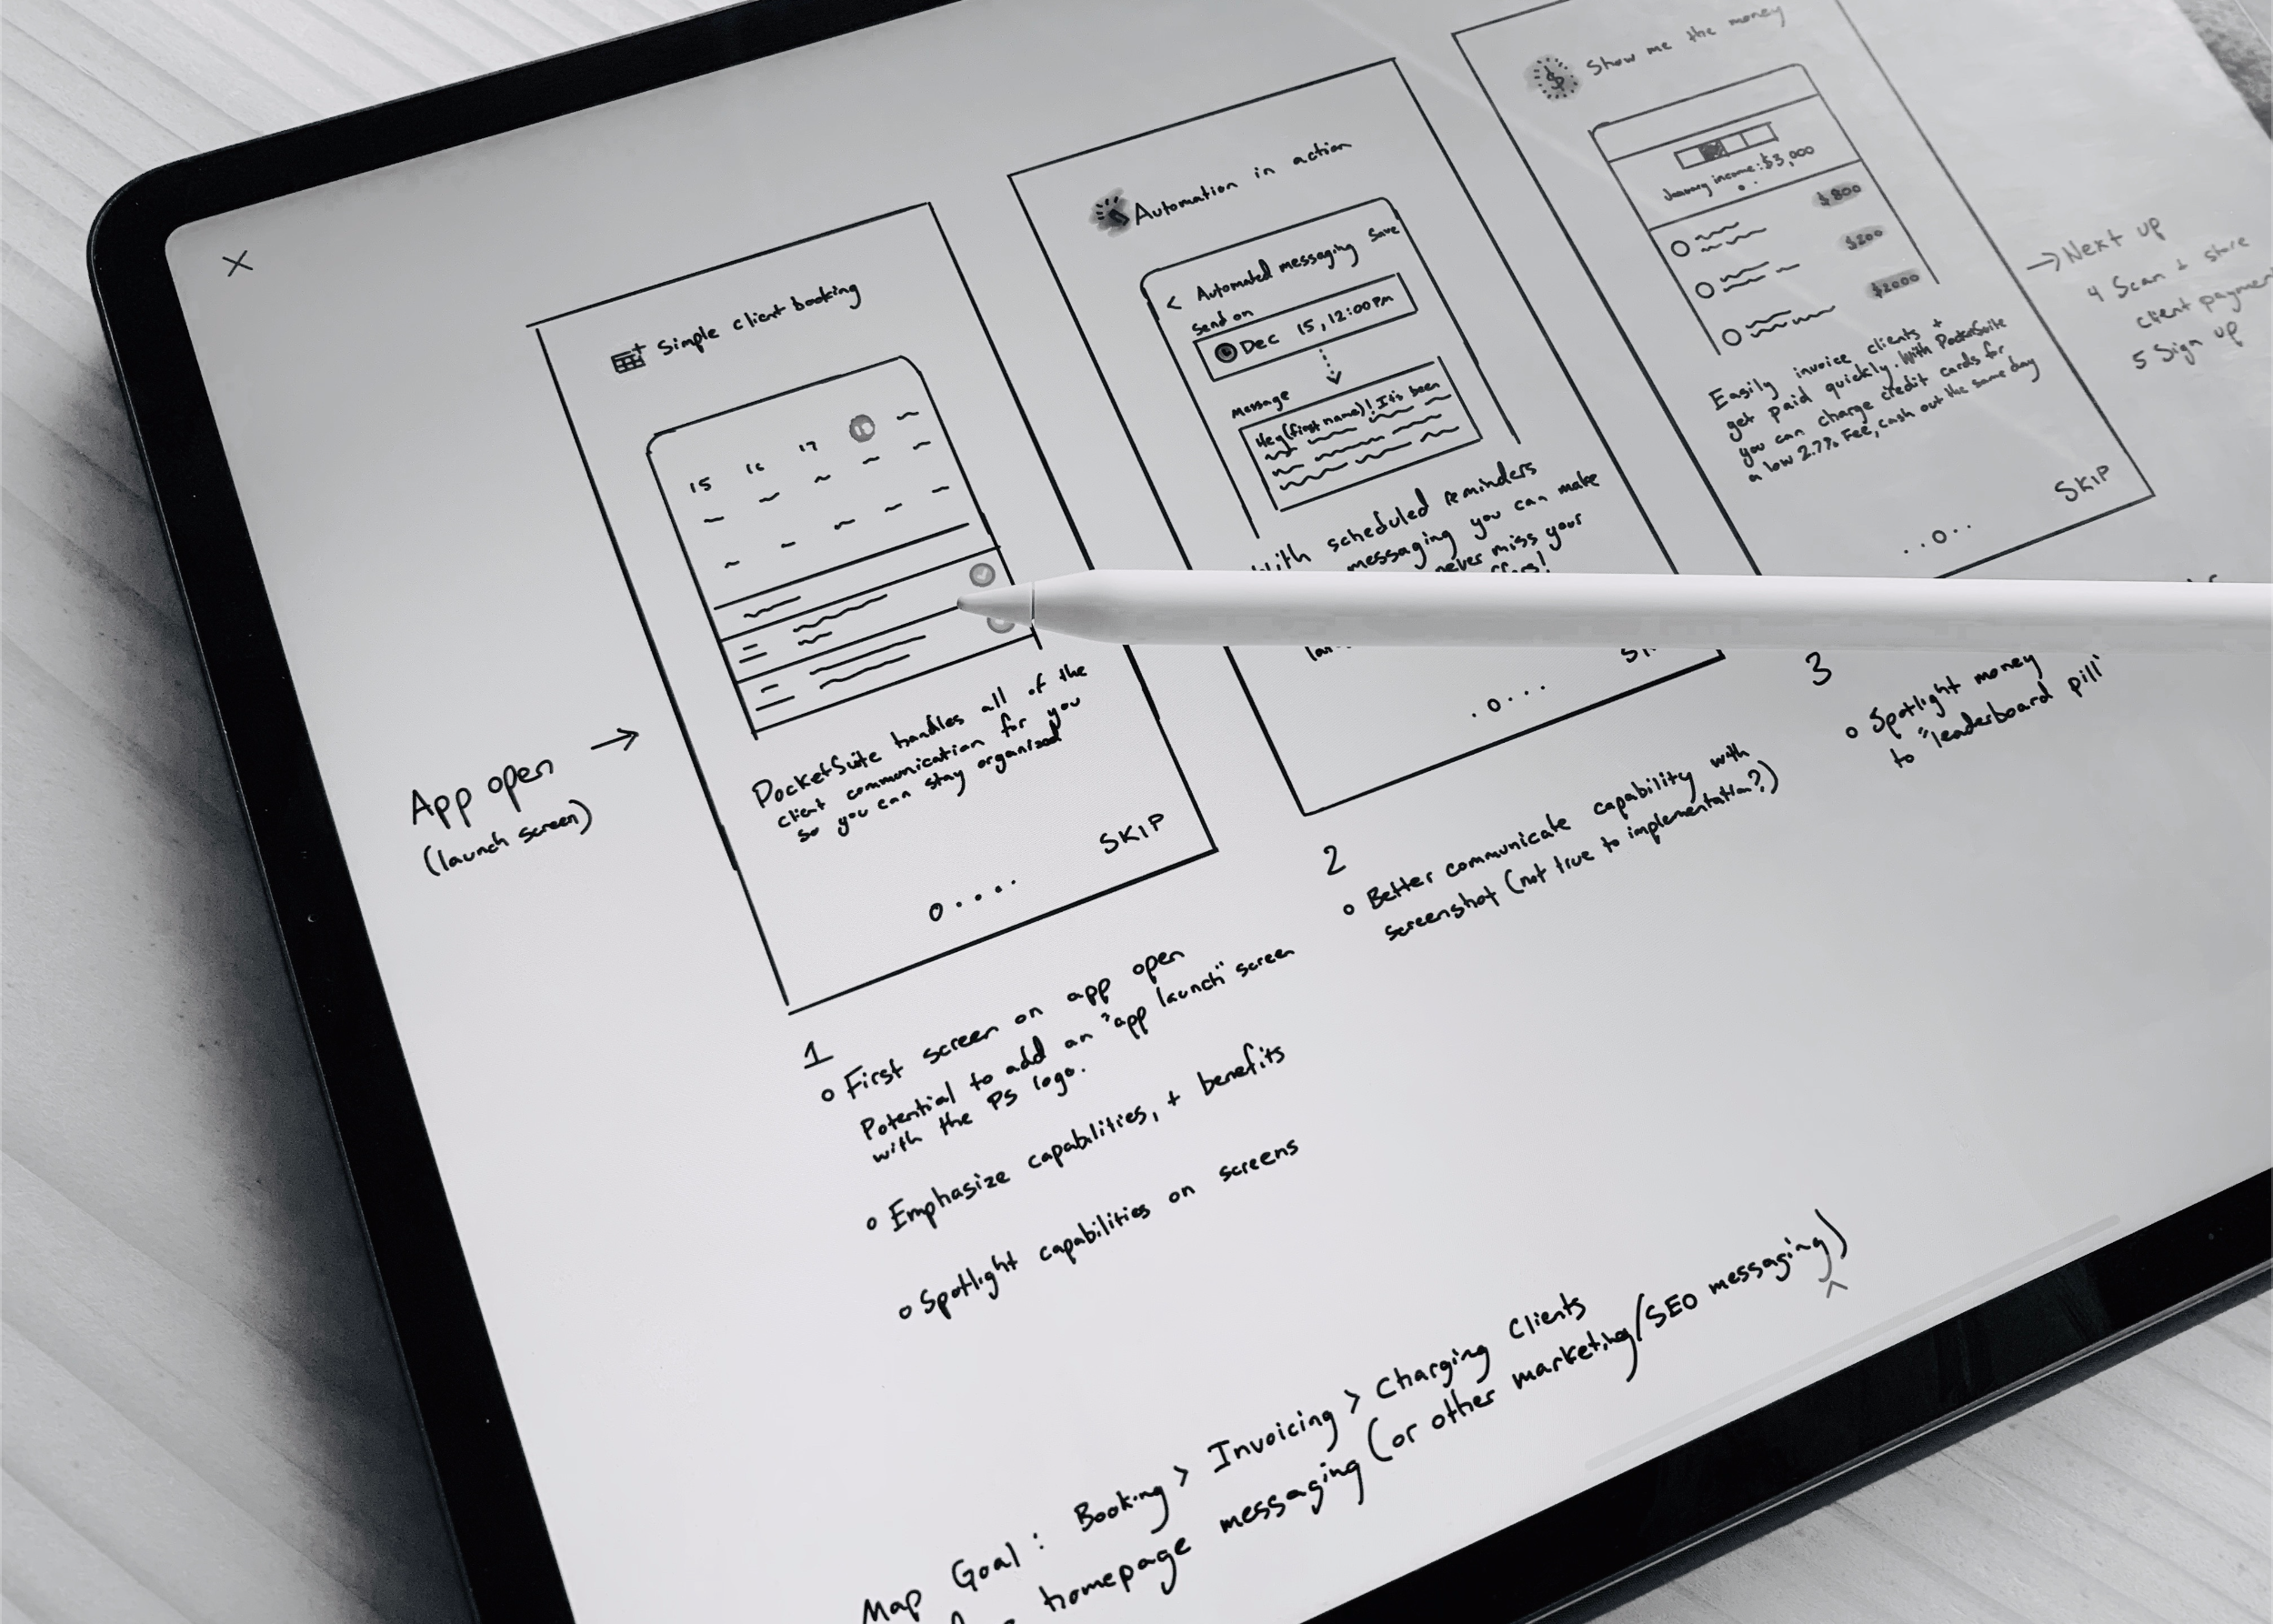 Simple client booking
15 16 17 18
PocketSuite handles all of the
client communication for you
so you can stay organized
SKIP
App open →
(launch screen)
1
First screen on app open
Potential to add an "app launch" screen
with the PS logo.
Emphasize capabilities, + benefits
Spotlight capabilities on screens
Automation in action
< Automated messaging Save
Send on
Dec 15, 12:00pm
Message
Hey (first name)! It's been
With scheduled reminders
messaging you can make
never miss your
2
Better communicate capability with
screenshot (not true to implementation?)
$ Show me the money
January income: $3,000
$800
$200
$2000
Easily invoice clients +
get paid quickly. With PocketSuite
you can charge credit cards for
a low 2.7% Fee, cash out the same day
SKIP
3
Spotlight money
to "leaderboard pill"
→ Next up
4 Scan + store
client payment
5 Sign up
Map Goal: Booking > Invoicing > Charging Clients
homepage messaging (or other marketing/SEO messaging)